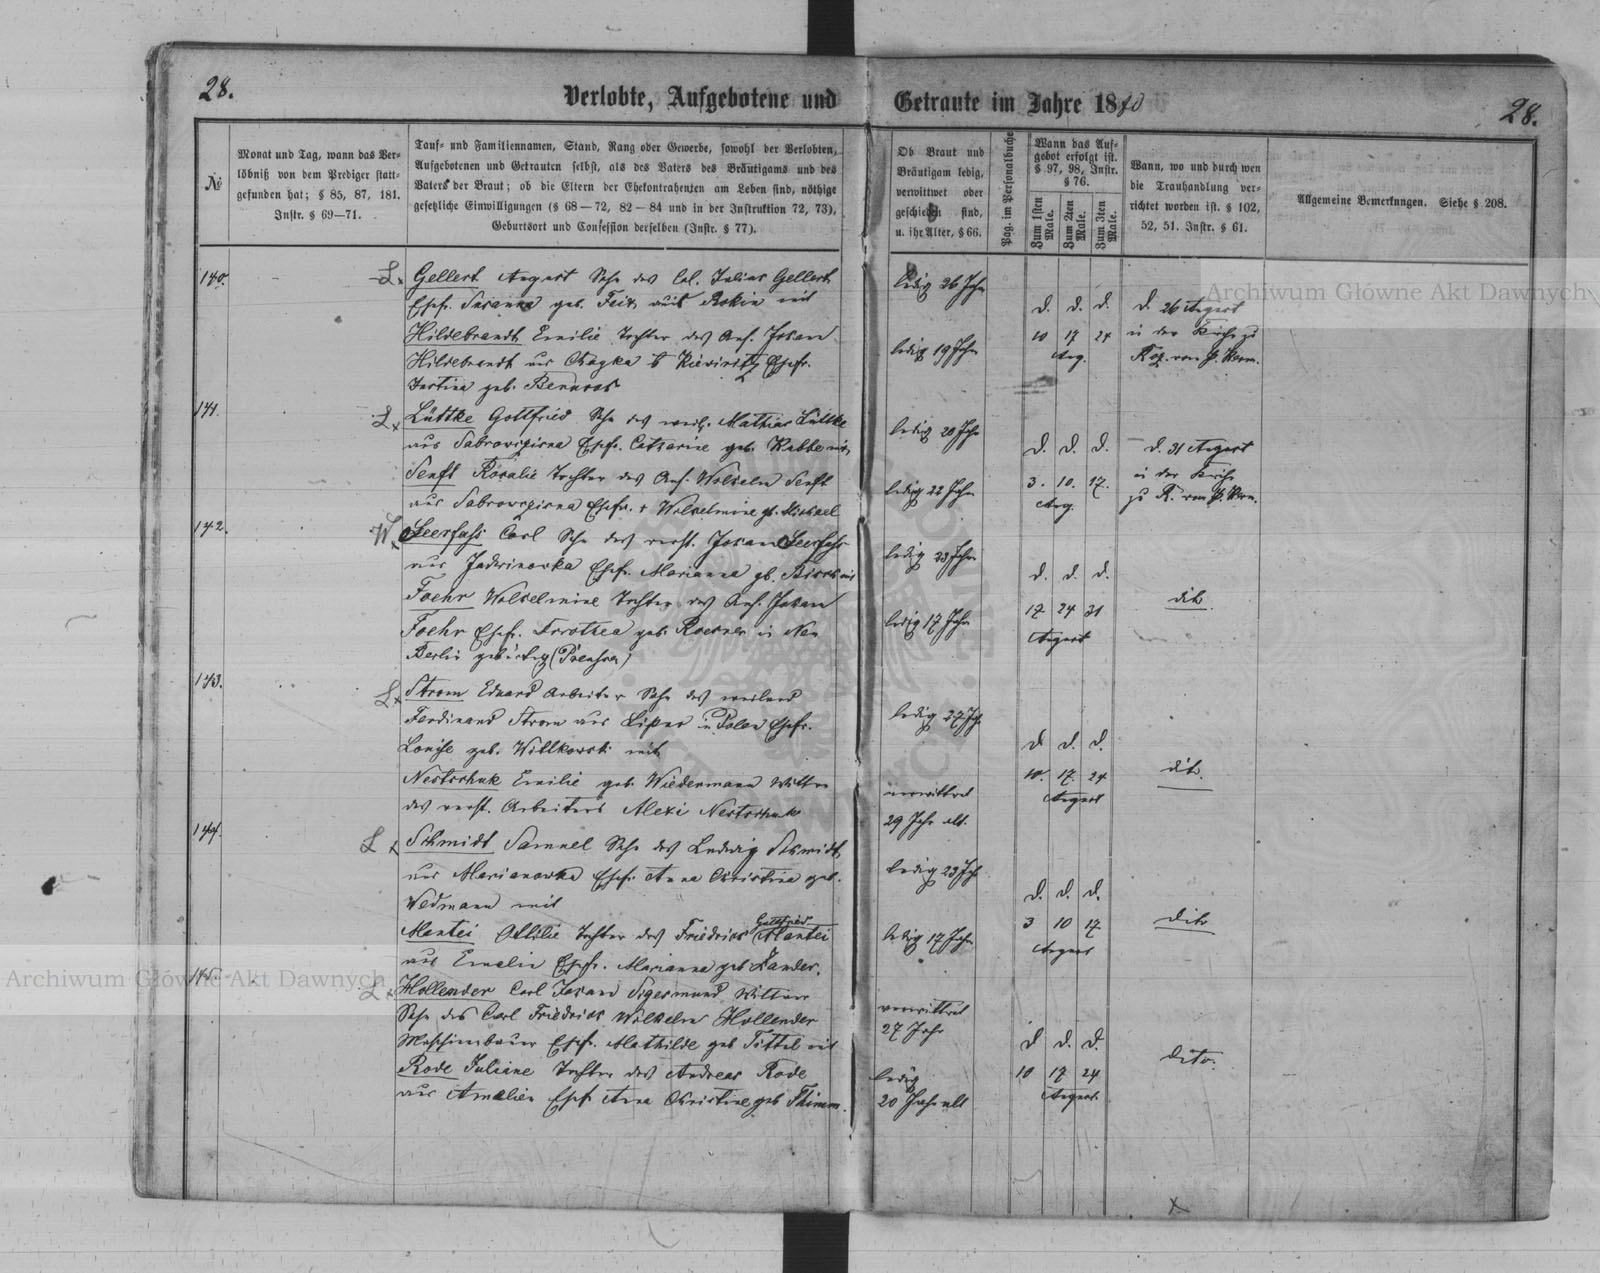 28.
Verlobte, Aufgebotene und Getraute im Jahre 1880
28.
№
Monat und Tag, wann das Ver-
löbniß von dem Prediger statt-
gefunden hat; § 85, 87, 181.
Instr. § 69—71.
Tauf- und Familiennamen, Stand, Rang oder Gewerbe, sowohl der Verlobten,
Aufgebotenen und Getrauten selbst, als des Vaters des Bräutigams und des
Vaters der Braut; ob die Eltern der Ehekontrahenten am Leben sind, nöthige
gesetzliche Einwilligungen (§ 68—72, 82—84 und in der Instruktion 72, 73),
Geburtsort und Confession derselben (Instr. § 77).
Ob Braut und
Bräutigam ledig,
verwittwet oder
geschieden sind,
u. ihr Alter, § 66.
Pag. im Personalbuche
Wann das Auf-
gebot erfolgt ist.
§ 97, 98, Instr.
§ 76.
Zum 1sten Male.
Zum 2ten Male.
Zum 3ten Male.
Wann, wo und durch wen
die Trauhandlung ver-
richtet worden ist. § 102,
52, 51. Instr. § 61.
Allgemeine Bemerkungen. Siehe § 208.
140.
L x
Gellert August Sohn des Col. Julius Gellert
Ehefr. Susanna geb. Feix aus Rokin mit
Hildebrandt Emilie Tochter des Ans. Johann
Hildebrandt aus
Justina geb.
ledig 26 Jahr
ledig 19 Jahr
d. d. d.
10 17 24
Aug.
d. 26 August
in der Kirche zu
von P.
141.
L x
Lüttke Gottfried Sohn des weil. Mathias Lüttke
aus Ehefr. Catharine geb. Rabbe mit
Senft Rosalie Tochter des Ans. Wilhelm Senft
aus Ehefr. Wilhelmine gb. Michael
ledig 20 Jahr
ledig 22 Jahr
d. d. d.
3. 10. 17.
Aug.
d. 31 August
in der Kirche
zu R. von P.
142.
W x
Leerfass Carl Sohn des verst. Johann Leerfass
aus Ehefr. Marianna gb. mit
Foehr Wilhelmine Tochter des Ans. Johann
Foehr Ehefr. Dorothea geb. in Neu
Berlin gebürtig (Preussen)
ledig 23 Jahr
ledig 17 Jahr
d. d. d.
17 24 31
August
dito
143.
L x
Strom Eduard Arbeiter Sohn des weiland
Ferdinand Strom aus Lipno in Polen Ehefr.
Louise geb. Willkowski mit
Nestschuk Emilie geb. Wiedermann Wittwe
des verst. Arbeiters Alexi Nestschuk
ledig 27 Jahr
verwittwet
29 Jahr alt.
d. d. d.
10. 17. 24
August
dito.
144.
L x
Schmidt Samuel Sohn des Ludwig Schmidt
aus Marianowka Ehefr. Anna Christina geb.
Wedmann mit
Mantei Ottilie Tochter des Friedrich Gottfried Mantei
aus Emelin Ehefr. Marianna geb Zander.
ledig 23 Jahr
ledig 17 Jahr
d. d. d.
3 10 17.
August
dito
145.
L x
Hollender Carl Johann Sigesmund Wittwer
Sohn des Carl Friedrich Wilhelm Hollender
Maschinbauer Ehefr. Mathilde geb Tittel mit
Rode Juliane Tochter des Andreas Rode
aus Amalien Ehefr Anna Christine geb Thimm.
verwittwet
27 Jahr
ledig
20 Jahr alt
d d. d.
10 17 24
August
dito.
Archiwum Główne Akt Dawnych
Archiwum Główne Akt Dawnych